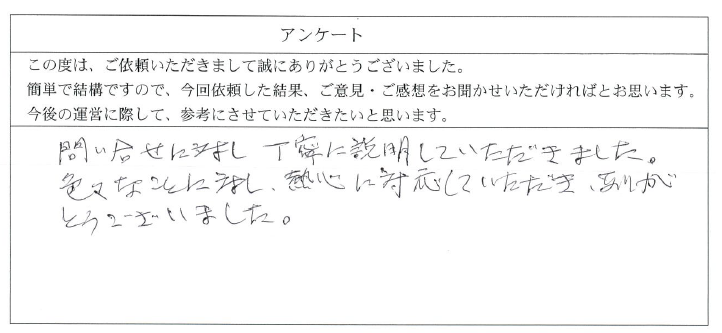 アンケート
この度は、ご依頼いただきまして誠にありがとうございました。
簡単で結構ですので、今回依頼した結果、ご意見・ご感想をお聞かせいただければとお思います。
今後の運営に際して、参考にさせていただきたいと思います。
問い合せに対し丁寧に説明していただきました。
色々なことに対し、熱心に対応していただき、ありが
とうございました。